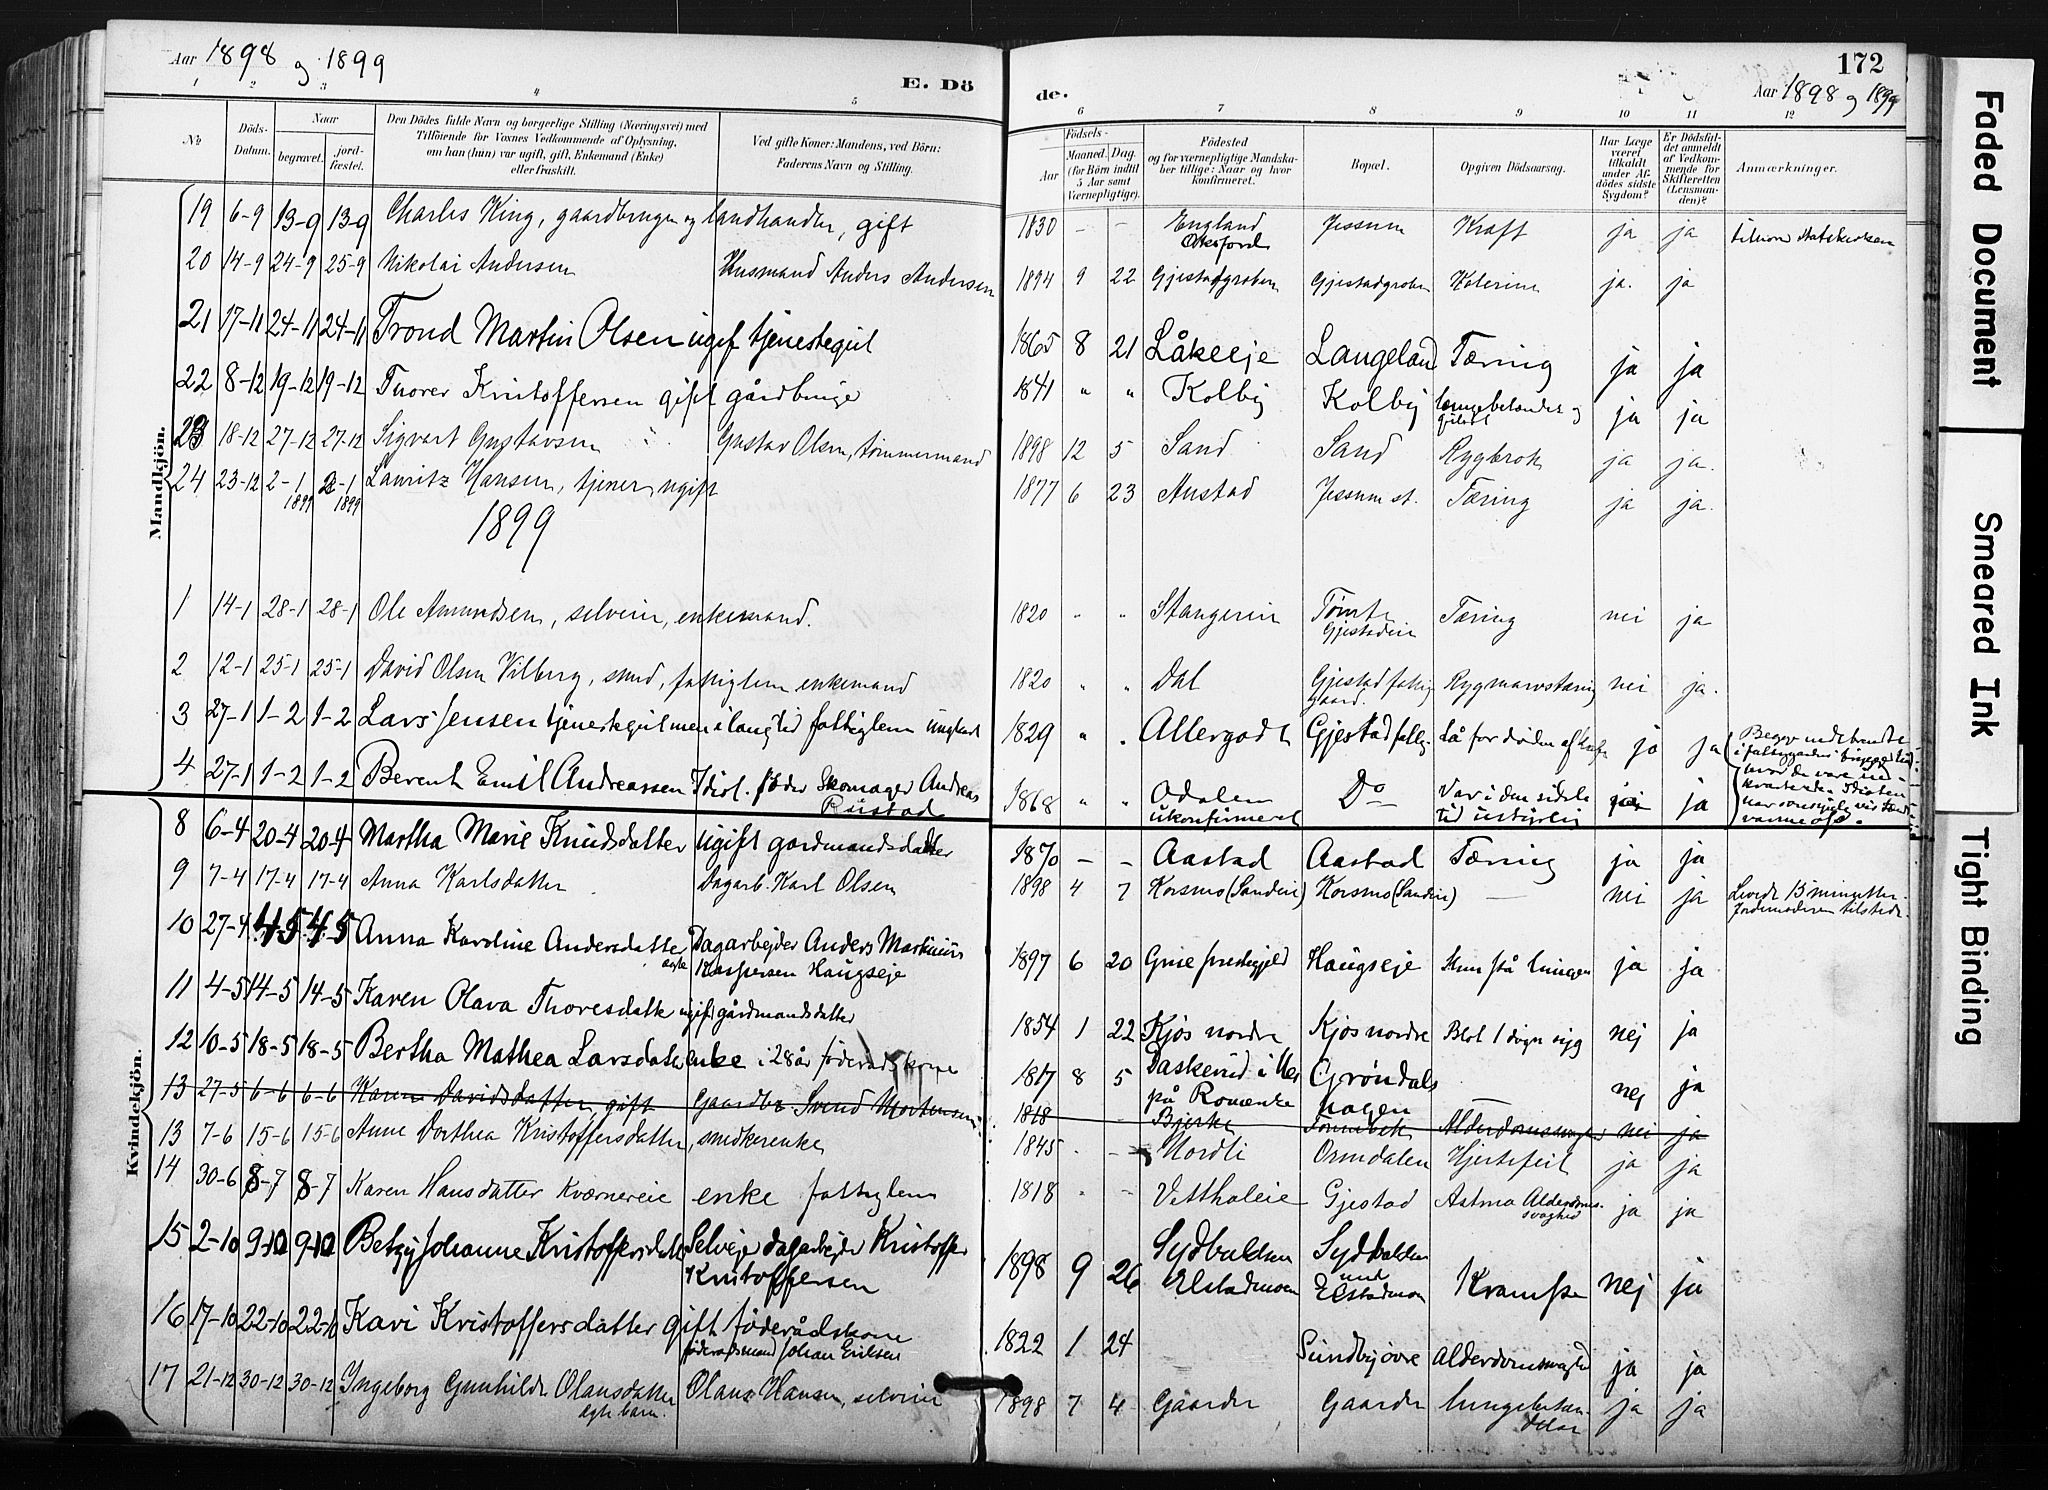 Aar 1898 og 1899
E. Dö
de.
172
Aar 1898 og 1899
1 2 3 4 5 6 7 8 9 10 11 12
No
Döds-Datum.
Naar
begravet. jordfæstet.
Den Dödes fulde Navn og borgerlige Stilling (Næringsvei) med
Tilföiende for Voxnes Vedkommende af Oplysning,
om han (hun) var ugift, gift, Enkemand (Enke)
eller fraskilt.
Ved gifte Koner: Mandens, ved Börn:
Faderens Navn og Stilling.
Födsels-
Aar
Maaned. Dag.
(for Börn indtil
5 Aar samt
Værnepligtige).
Födested
og for værnepligtige Mandskaber
tillige: Naar og hvor
konfirmeret.
Bopæl.
Opgiven Dödsaarsag.
Har Læge
været
tilkaldt
under Afdödes
sidste
Sygdom?
Er Dödsfaldet
anmeldt
af Vedkommende
for
Skifteretten
(Lensmanden)?
Anmærkninger.
Mandkjön.
19 6-9 13-9 13-9 Charles King, gaardbruger og landhandler, gift 1830 - - England Oksford Jessum Kræft ja ja
20 14-9 24-9 25-9 Nikolai Andersen Husmand Anders Andersen 1894 9 22 Gjestadgroben Gjestadgroben ja. ja
21 17-11 24-11 24-11 Trond Martin Olsen ugif tjenestegut 1865 8 21 Låkeeje Langeland Tæring ja ja
22 8-12 19-12 19-12 Thorer Kristoffersen gift gårdbruge 1841 " " Kolby Kolby ja ja
23 18-12 27-12 27-12 Sigvart Gustavsen Gustav Olsen, tømmermand 1898 12 5 Sand Sand Rygbrok ja ja.
24 23-12 2-1 1899 2-1 1899 Lauritz Hansen, tjener, ugift 1877 6 23 Austad Jessum st. Tæring ja ja.
1899
1 14-1 28-1 28-1 Ole Amundsen, selveier, enkemand. 1820 " " Stangeeie Tømte Gjestadeie Tæring nei ja
2 12-1 25-1 25-1 David Olsen Vilberg, smed, fattiglem enkemand 1820 " " Dal Gjestad fattiggaard. Rygmarvstæring nei ja.
3 27-1 1-2 1-2 Lars Jensen tjenestegut men i lang tid fattiglem ungkarl 1829 " " Allergodt Gjestad fattig. Lå for døden af ja ja
4 27-1 1-2 1-2 Berent Emil Andreassen Idiot. fader Skomager Andreas Rustad 1868 " " Odalen ukonfirmeret Do Var i den sidste tid ustyrlig ja
Begge indebrændte
Kvindekjön.
8 6-4 20-4 20-4 Martha Marie Knudsdatter Ugift gårdmandsdatter 1870 - - Aastad Aastad Tæring ja ja
9 7-4 17-4 17-4 Anna Karlsdatter Dagarb. Karl Olsen 1898 4 7 Korsmo (Sandeie) Korsmo (Sandeie) — nei ja Levede 15 minutter. Jordemoderen tilstede.
10 27-4 4-5 4-5 Anna Karoline Andersdatter ægte Dagarbejder Anders Martinius Kaspersen Haugseje 1897 6 20 Grue prestegjeld Haugseje ja ja
11 4-5 14-5 14-5 Karen Olava Thoresdatte ugift gårdmandsdatter 1854 1 22 Kjos nordre Kjos nordre Blot 1 døgn syg nej ja
12 10-5 18-5 18-5 Bertha Mathea Larsdatte enke i 28 år føderadskone 1817 8 5 Daskerud i Nes på Romerike Grøndalshagen nej ja
13 27-5 6-6 6-6 Karen Davidsdatter, gift Gaardbr Svend Mortensen 1818 Bjerke Alderdomssvaghed nei ja
13 7-6 15-6 15-6 Anne Dorthea Kristoffersdatter, smedkerenke 1845 - - Nordli Ormdalen Hjertefeil ja ja
14 30-6 8-7 8-7 Karen Hansdatter Kværnereie enke fattiglem 1818 " - Vetthaleie Gjestad Astma Alderdomssvaghed ja ja
15 2-10 9-10 9-10 Betzy Johanne Kristoffersdatt Selvejer dagarbejder Kristoffer Kristoffersen 1898 9 26 Elstadmoen Sydbalden und Elstadmoen Krampe nej ja
16 17-10 22-10 22-10 Kari Kristoffersdatter gift føderådskone føderadsmand Johan Eriksen 1822 1 24 Sundby øvre Alderdomssvaghed ja ja
17 21-12 30-12 30-12 Ingeborg Gunhilde Olausdatter ægte barn. Olaus Hansen, selveier 1898 7 4 Gaarder Gaarder lungebetændelse ja ja
Faded Document
Smeared Ink
Tight Binding